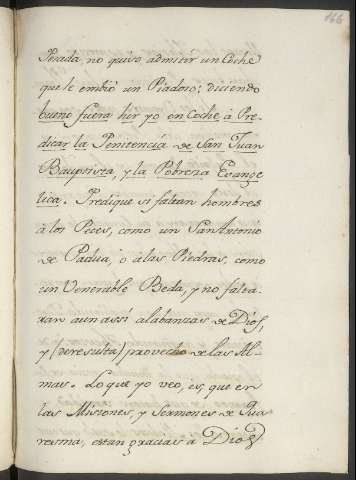 166
Posada no quiso admitir un Coche
que le embió un Piadoso; diciendo
bueno fuera hir yo en Coche à Pre-
dicar la Penitencia de San Juan
Bauptista, y la Pobreza Evange
lica. Predique si faltan hombres
à los Peces, como un San Antonio
de Padua, ò à las Piedras, como
un Venerable Beda, y no falta-
ran aun assi alabanzas de Dios,
y (se resulta) provecho de las Al-
mas. Lo que yo veo, es, que en
las Missiones, y Sermones de Qua
resma, estan gracias à Dios